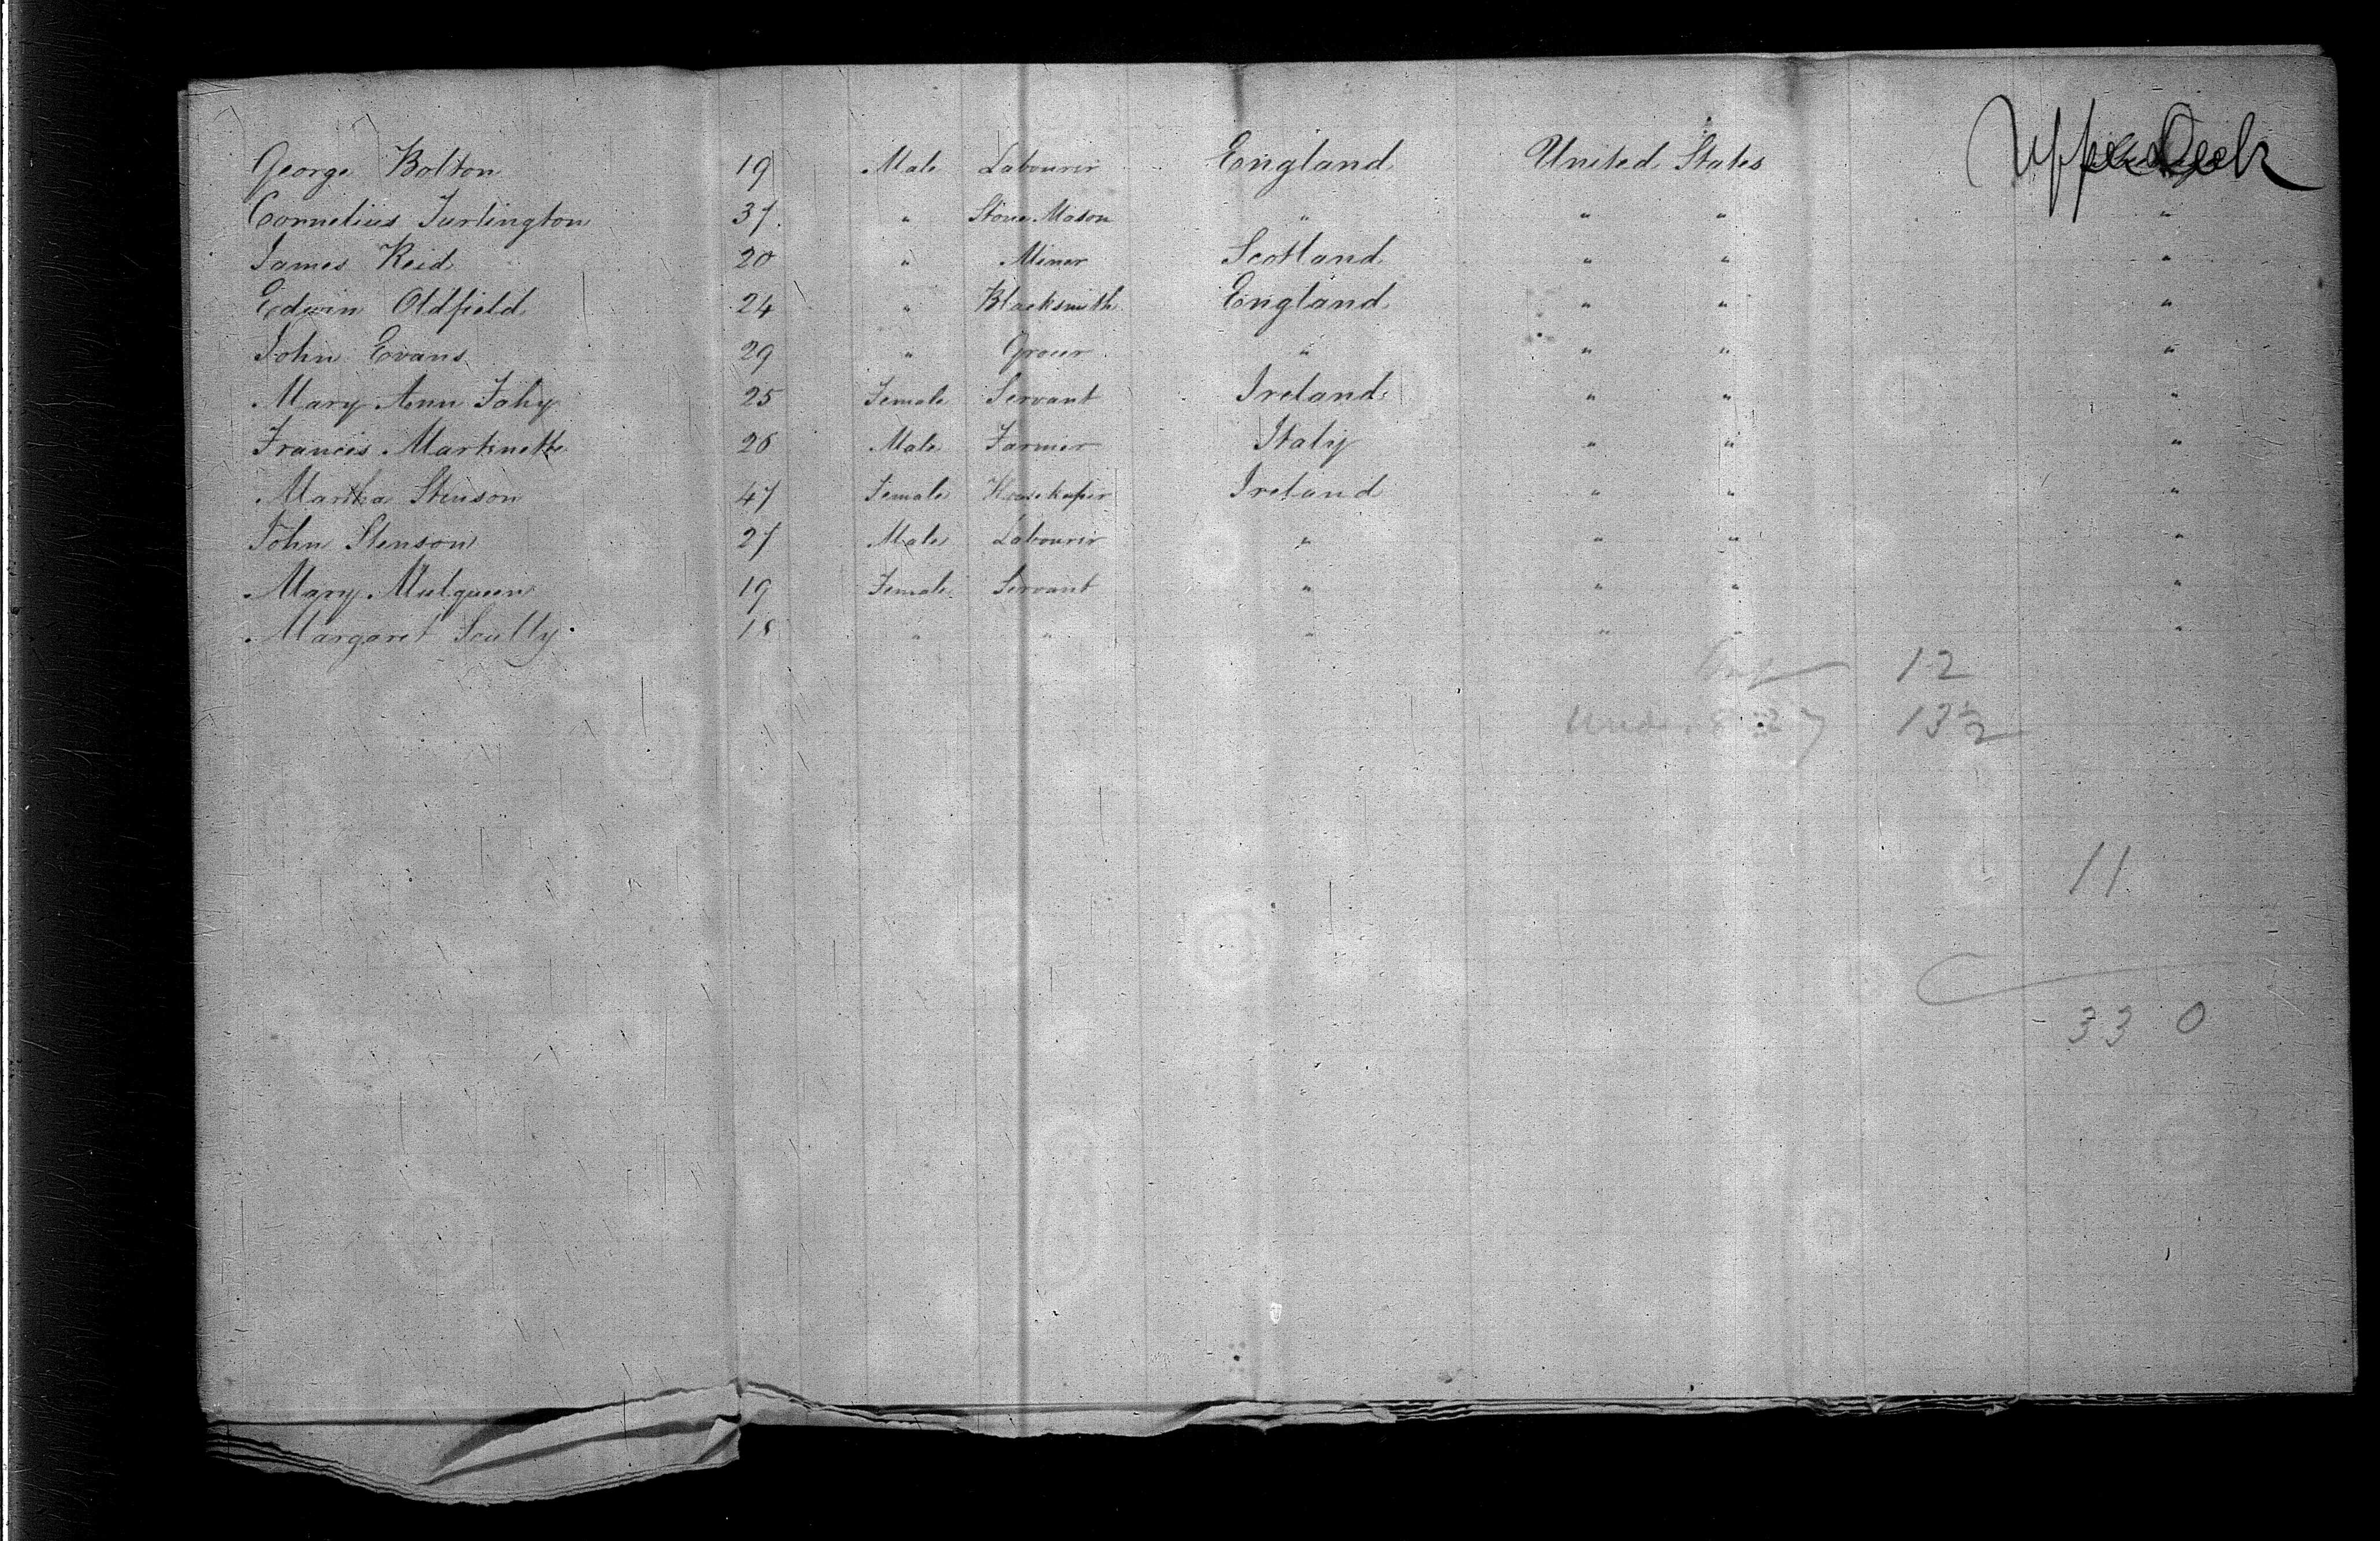 George Bolton 19 Male Labourer England United States Upper Deck
Cornelius Turlington 37. " Stone Mason " " " "
James Reid 20 " Miner Scotland " " "
Edwin Oldfield 24 " Blacksmith England " " "
John Evans 29 " Grocer " " " "
Mary Ann Fahy 25 Female Servant Ireland " " "
Francis 26 Male Farmer Italy " " "
Martha Stenson 47 Female Housekeeper Ireland " " "
John Stenson 27 Male Labourer " " " "
Mary Mulqueen 19 Female Servant " " " "
Margaret Scully 18 " " " " " "
12
Under 8 27 13½
11
33 0